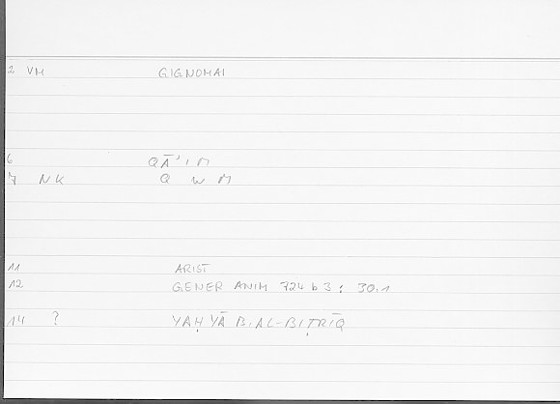 2 VM GIGNOMAI
6 QĀ'IM
7 NK QWM
11 ARIST
12 GENER ANIM 724 b 3 : 30.1
14 ? YAḤYĀ B. AL-BIṬRĪQ